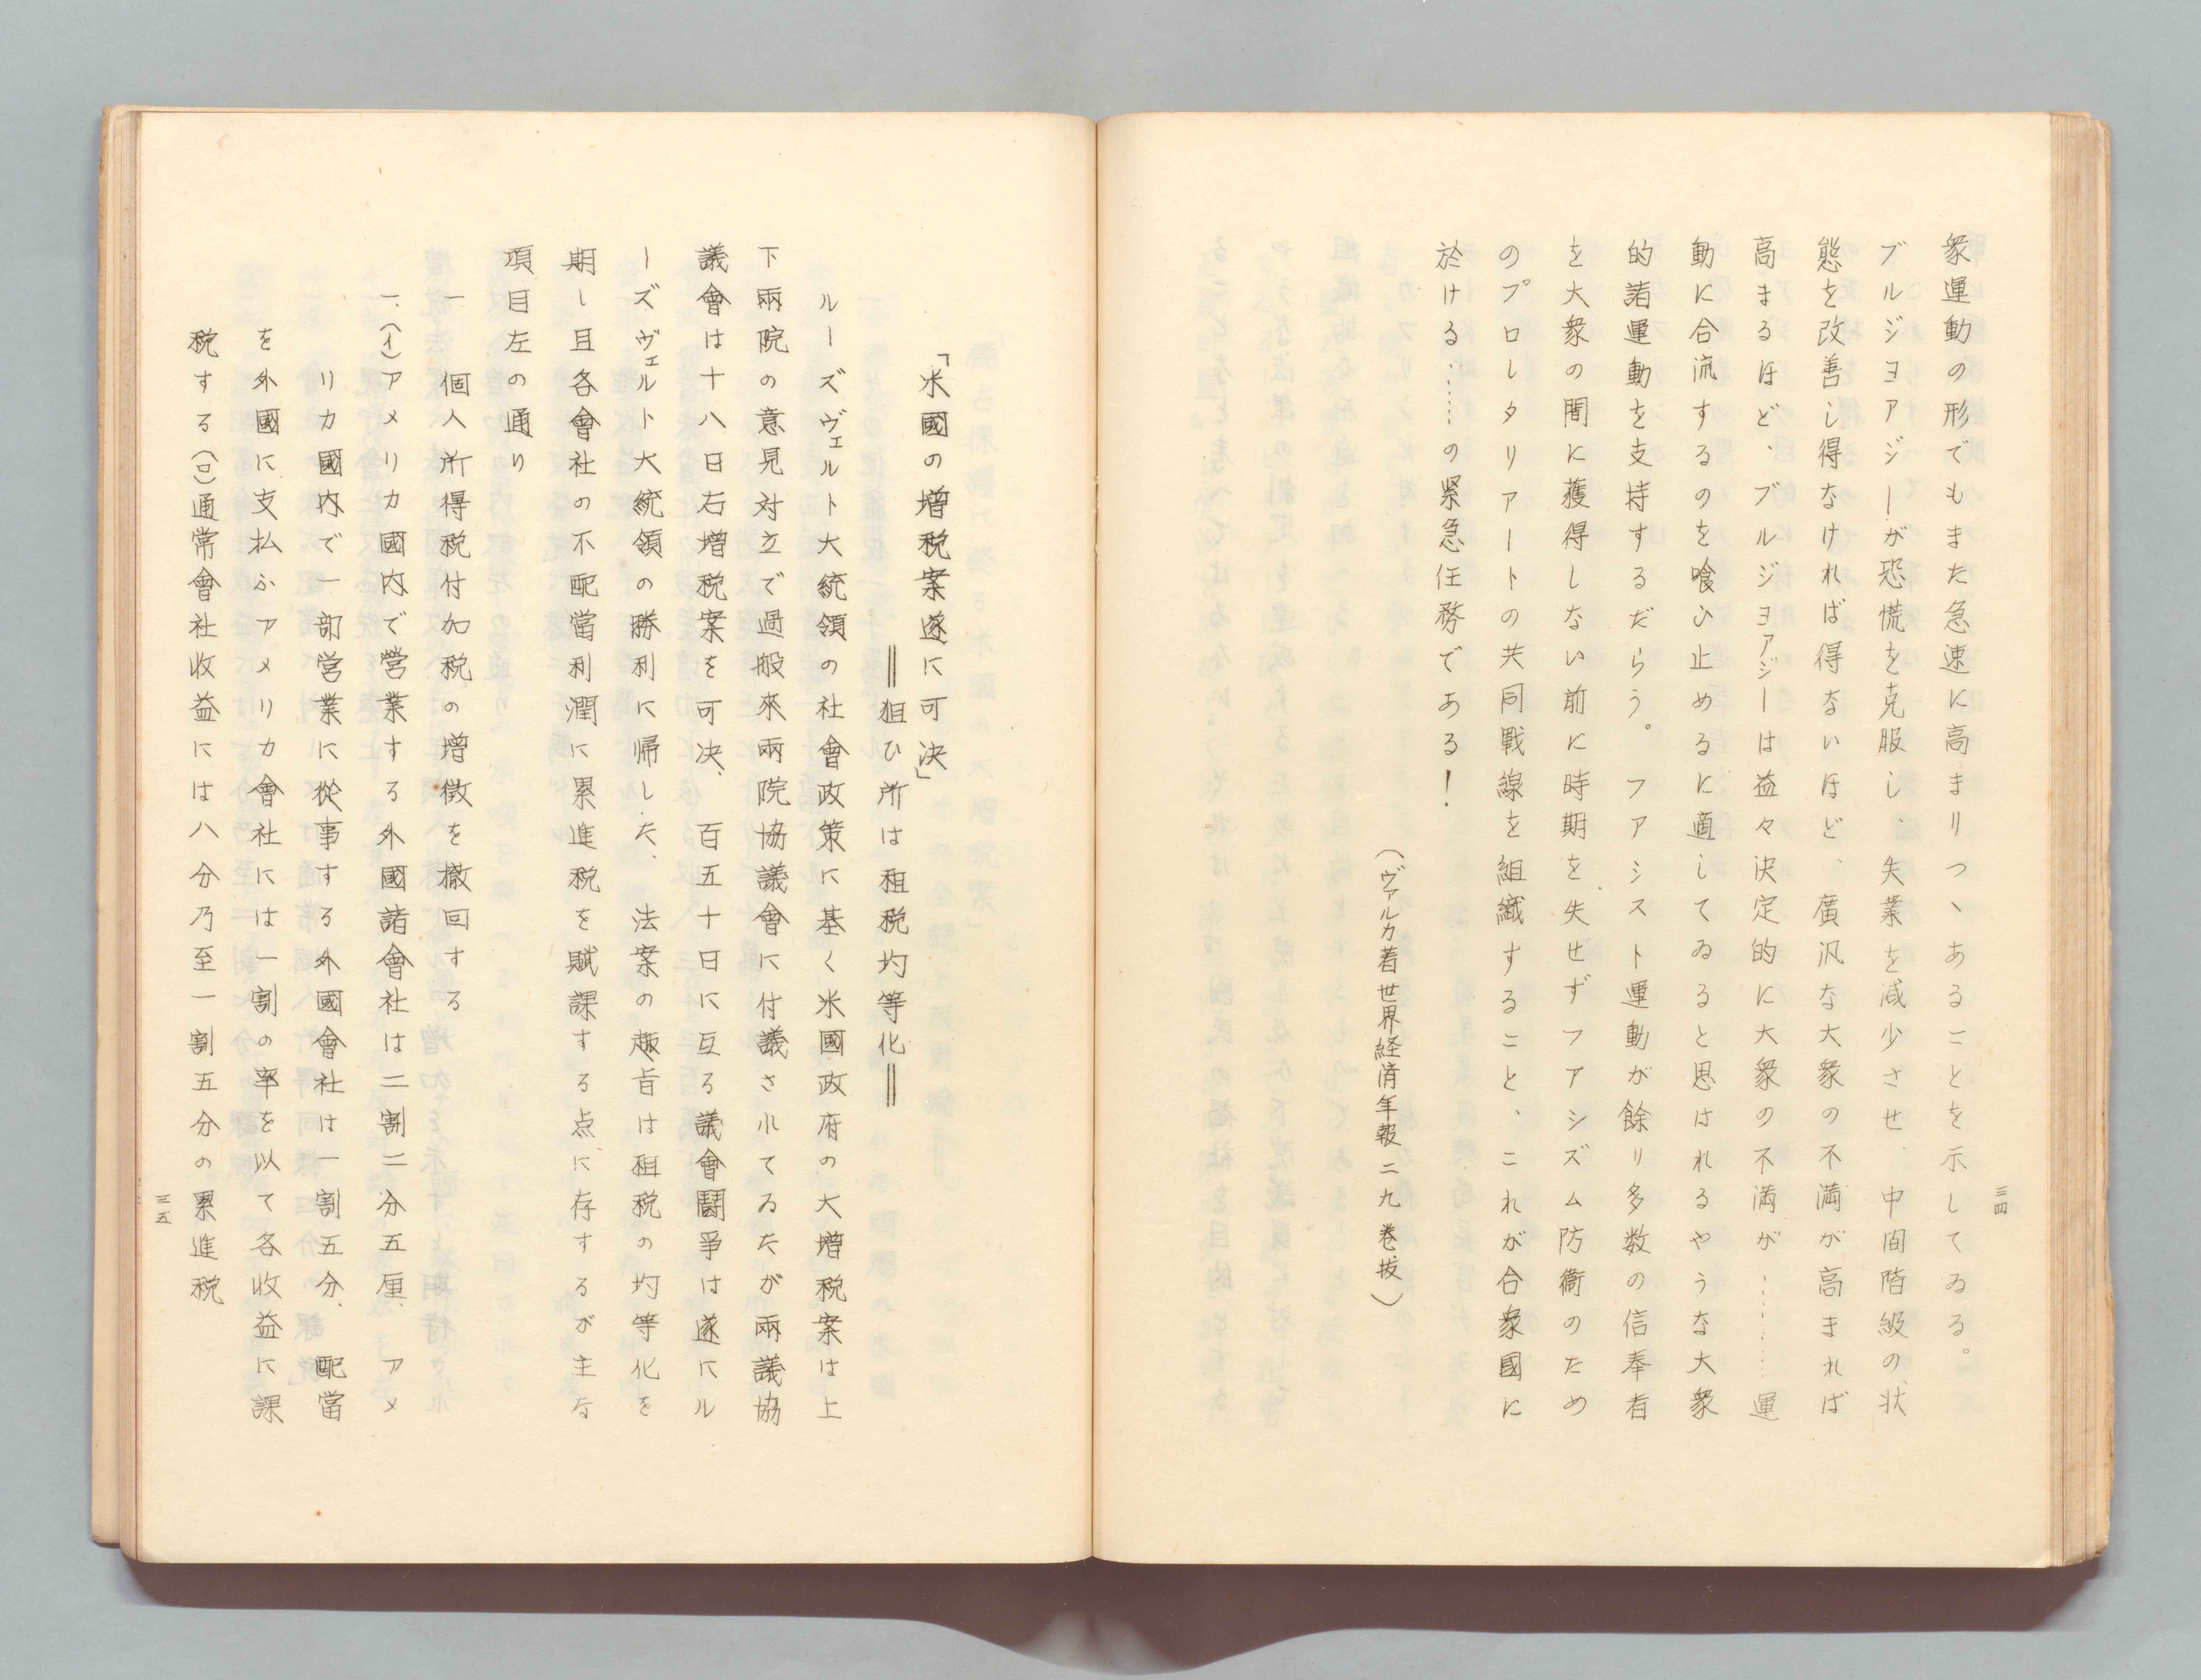 三四
衆運動の形でもまた急速に高まりつヽあることを示してゐる。
ブルジヨアジーが恐慌を克服し、失業を減少させ、中間階級の状
態を改善し得なければ得ないほど、廣汎な大衆の不満が高まれば
高まるほど、ブルジヨアジーは益々決定的に大衆の不満が‥‥‥‥運
動に合流するのを喰ひ止めるに適してゐると思はれるやうな大衆
的諸運動を支持するだらう。フアシスト運動が餘り多数の信奉者
を大衆の間に獲得しない前に時期を失せずフアシズム防衞のため
のプロレタリアートの共同戰線を組織すること、これが合衆國に
於ける‥‥‥の緊急任務である!
(ヴァルカ着世界経済年報二九巻抜)
「米國の増税案遂に可決」
‖狙ひ所は租税均等化‖
ルーズヴェルト大統領の社會政策に基く米國政府の大増税案は上
下兩院の意見対立で過般來兩院協議會に付議されてゐたが兩議協
議會は十八日右増税案を可決、百五十日に亙る議會鬪爭は遂にル
ーズヴェルト大統領の勝利に帰した、法案の趣旨は租税の均等化を
期し且各會社の不配當利潤に累進税を賦課する点に存するが主な
項目左の通り
一 個人所得税付加税の増徴を撤回する
一、(イ)アメリカ國内で營業する外國諸會社は二割二分五厘、アメ
リカ國内で一部営業に從事する外國會社は一割五分、配當
を外國に支払ふアメリカ會社には一割の率を以て各收益に課
税する(ロ)通常會社收益には八分乃至一割五分の累進税
三五